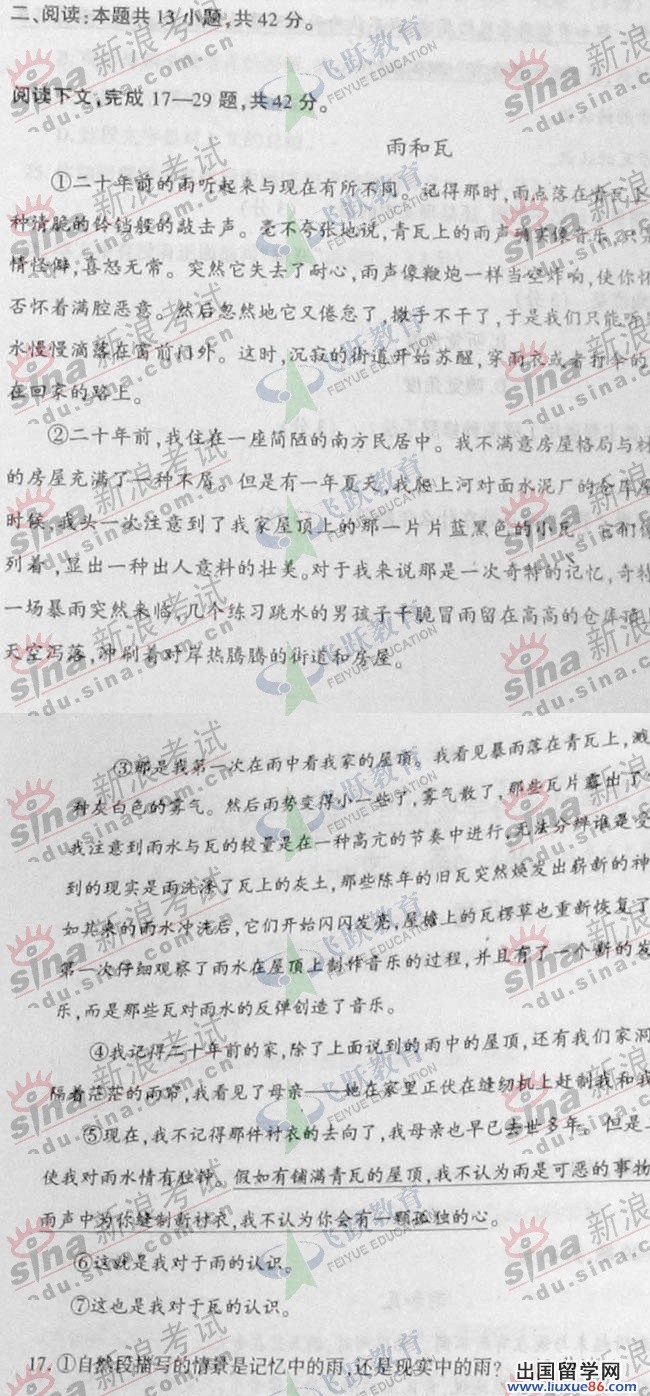 二、阅读:本题共13小题,共42分。
阅读下文,完成17—29题,共42分。
雨和瓦
①二十年前的雨听起来与现在有所不同。记得那时,雨点落在青瓦上
种清脆的铃铛般的敲击声。毫不夸张地说,青瓦上的雨声确实像音乐,只是
情怪僻,喜怒无常。突然它失去了耐心,雨声像鞭炮一样当空炸响,使你怀
否怀着满腔恶意。然后忽然地它又倦怠了,撒手不干了,于是我们只能听
水慢慢滴落在窗前门外。这时,沉寂的街道开始苏醒,穿雨衣或者打伞的
在回家的路上。
②二十年前,我住在一座简陋的南方民居中。我不满意房屋格局与材
的房屋充满了一种不屑。但是有一年夏天,我爬上河对面水泥厂的仓库屋
时候,我头一次注意到了我家屋顶上的那一片片蓝黑色的小瓦。它们像
列着,显出一种出人意料的壮美。对于我来说那是一次奇特的记忆,奇特
一场暴雨突然来临,几个练习跳水的男孩子干脆冒雨留在高高的仓库顶上
天空泻落,冲刷着对岸热腾腾的街道和房屋。
③那是我第一次在雨中看我家的屋顶。我看见暴雨落在青瓦上,溅
种灰白色的雾气。然后雨势变得小一些了,雾气散了,那些瓦片露出了
我注意到雨水与瓦的较量是在一种高亢的节奏中进行,无法分辨谁是受
到的现实是雨洗涤了瓦上的灰土,那些陈年的旧瓦突然焕发出崭新的神
如其来的雨水冲洗后,它们开始闪闪发亮,屋檐上的瓦楞草也重新恢复了
第一次仔细观察了雨水在屋顶上制作音乐的过程,并且有了一个新的发
乐,而是那些瓦对雨水的反弹创造了音乐。
④我记得二十年前的家,除了上面说到的雨中的屋顶,还有我们家洞
隔着茫茫的雨帘,我看见了母亲——她在家里正伏在缝纫机上赶制我和我
⑤现在,我不记得那件衬衣的去向了,我母亲也早已去世多年。但是
使我对雨水情有独钟。假如有铺满青瓦的屋顶,我不认为雨是可恶的事物
雨声中为你缝制新衬衣,我不认为你会有一颗孤独的心。
⑥这就是我对于雨的认识。
⑦这也是我对于瓦的认识。
17.①自然段描写的情景是记忆中的雨,还是现实中的雨?
新浪考试
sina
edu.sina.com.cn
飞跃教育
FEIYUE EDUCATION
出国留学网
www.liuxue86.com